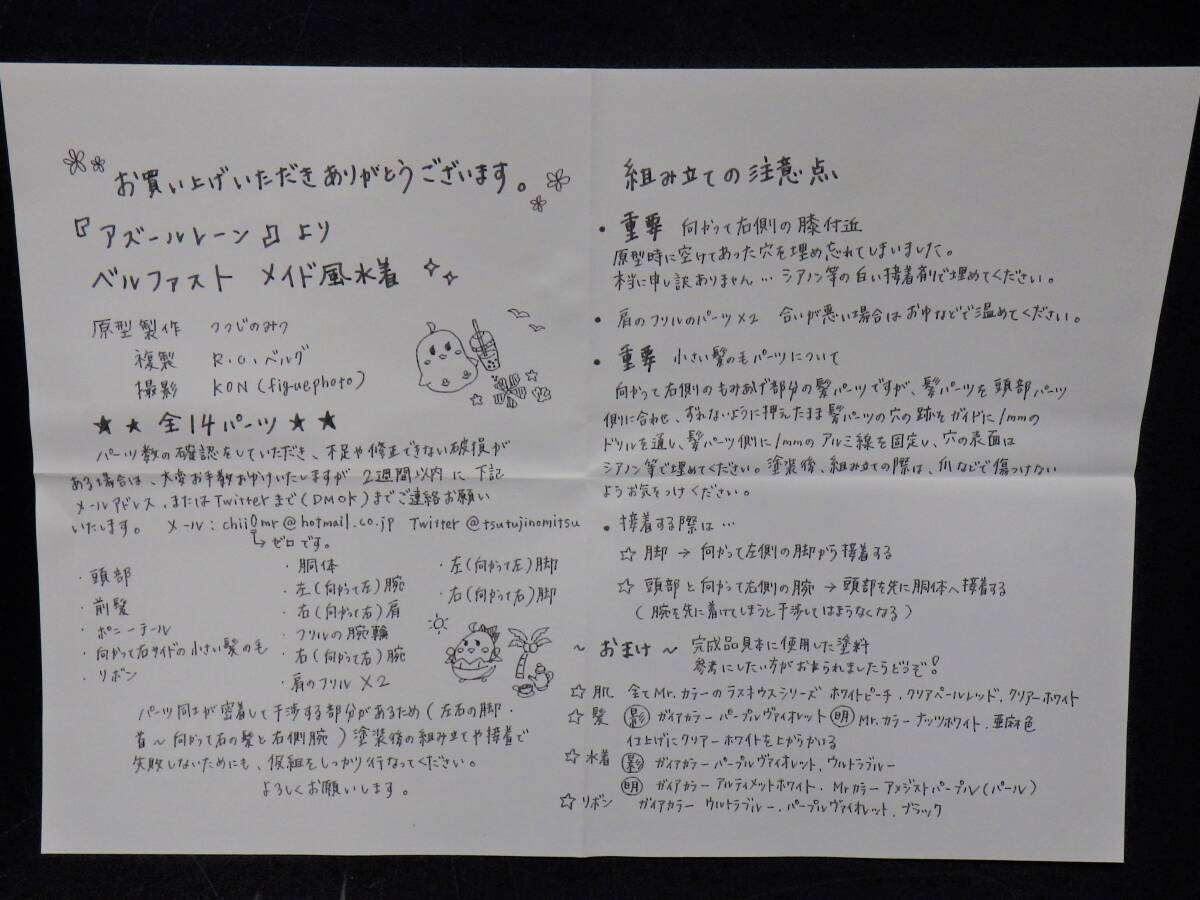 お買い上げいただきありがとうございます。
『アズールレーン』より
ベルファスト メイド風水着
原型製作 つつじのみつ
複製 R.C.ベルグ
撮影 KON(figuephoto)
★★全14パーツ★★
パーツ数の確認をしていただき、不足や修正できない破損が
ある場合は、大変お手数おかけいたしますが 2週間以内に 下記
メールアドレス、またはTwitterまで(DMOK)までご連絡お願い
いたします。 メール:chii0mr@hotmail.co.jp Twitter@tsutujinomitsu
↳ゼロです。
・頭部
・前髪
・ポニーテール
・向かって右サイドの小さい髪の毛
・リボン
・胴体
・左(向かって左)腕
・右(向かって右)肩
・フリルの腕輪
・右(向かって右)腕
・肩のフリル×2
・左(向かって左)脚
・右(向かって右)脚
パーツ同士が密着して干渉する部分があるため(左右の脚・
首~向かって右の髪と右側腕)塗装後の組み立てや接着で
失敗しないためにも、仮組をしっかり行なってください。
よろしくお願いします。
組み立ての注意点
・重要 向かって右側の膝付近
原型時に空けてあった穴を埋め忘れてしまいました。
本当に申し訳ありません…シアノン等の白い接着剤で埋めてください。
・肩のフリルのパーツ×2 合いが悪い場合はお湯などで温めてください。
・重要 小さい髪の毛パーツについて
向かって右側のもみあげ部分の髪パーツですが、髪パーツを頭部パーツ
側に合わせ、ずれないように押えたまま髪パーツの穴の跡をガイドに1mmの
ドリルを通し、髪パーツ側に1mmのアルミ線を固定し、穴の表面は
シアノン等で埋めてください。塗装後、組み立ての際は、爪などで傷つけない
ようお気をつけください。
・接着する際は…
☆脚→向かって左側の脚から接着する
☆頭部と向かって右側の腕→頭部を先に胴体へ接着する
(腕を先に着けてしまうと干渉してはまらなくなる)
~おまけ~ 完成品見本に使用した塗料
参考にしたい方がおられましたらどうぞ!
☆肌 全てMr.カラーのラスキウスシリーズ ホワイトピーチ、クリアペールレッド、クリアーホワイト
☆髪 影 ガイアカラー パープルヴァイオレット 明 Mr.カラー ナッツホワイト、亜麻色
仕上げにクリアーホワイトを上からかける
☆水着 影 ガイアカラー パープルヴァイオレット、ウルトラブルー
明 ガイアカラー アルティメットホワイト、Mrカラー アメジストパープル(パール)
☆リボン ガイアカラー ウルトラブルー、パープルヴァイオレット、ブラック